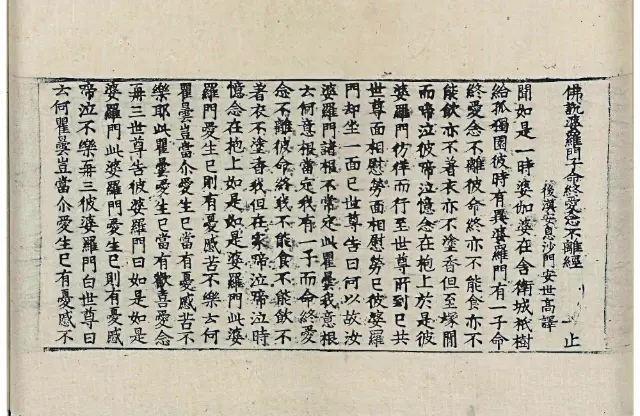 佛說婆羅門子命終愛念不離經 止
後漢安息沙門安世高譯
聞如是一時婆伽婆在舍衛城祇樹
給孤獨園彼時有異婆羅門有一子命
終愛念不離彼命終亦不能食亦不
能飲亦不著衣亦不塗香但至塚間
而啼泣彼啼泣憶念在抱上於是彼
婆羅門彷徉而行至世尊所到已共
世尊面相慰勞面相慰勞已彼婆羅
門却坐一面已世尊告曰何以故汝
婆羅門諸根不常定此瞿曇我意根
云何意根當定我有一子而命終愛
念不離彼命終我不能食不能飲不
著衣不塗香我但在冢啼泣啼泣時
憶念在抱上如是如是婆羅門此婆
羅門愛生已則有憂慼苦不樂云何
瞿曇豈當尒愛生已當有憂慼苦不
樂耶此瞿曇愛生已當有歡喜愛念
再三世尊告彼婆羅門曰如是如是
婆羅門此婆羅門愛生已則有憂慼
啼泣不樂再三彼婆羅門白世尊曰
云何瞿曇豈當尒愛生已有憂慼不